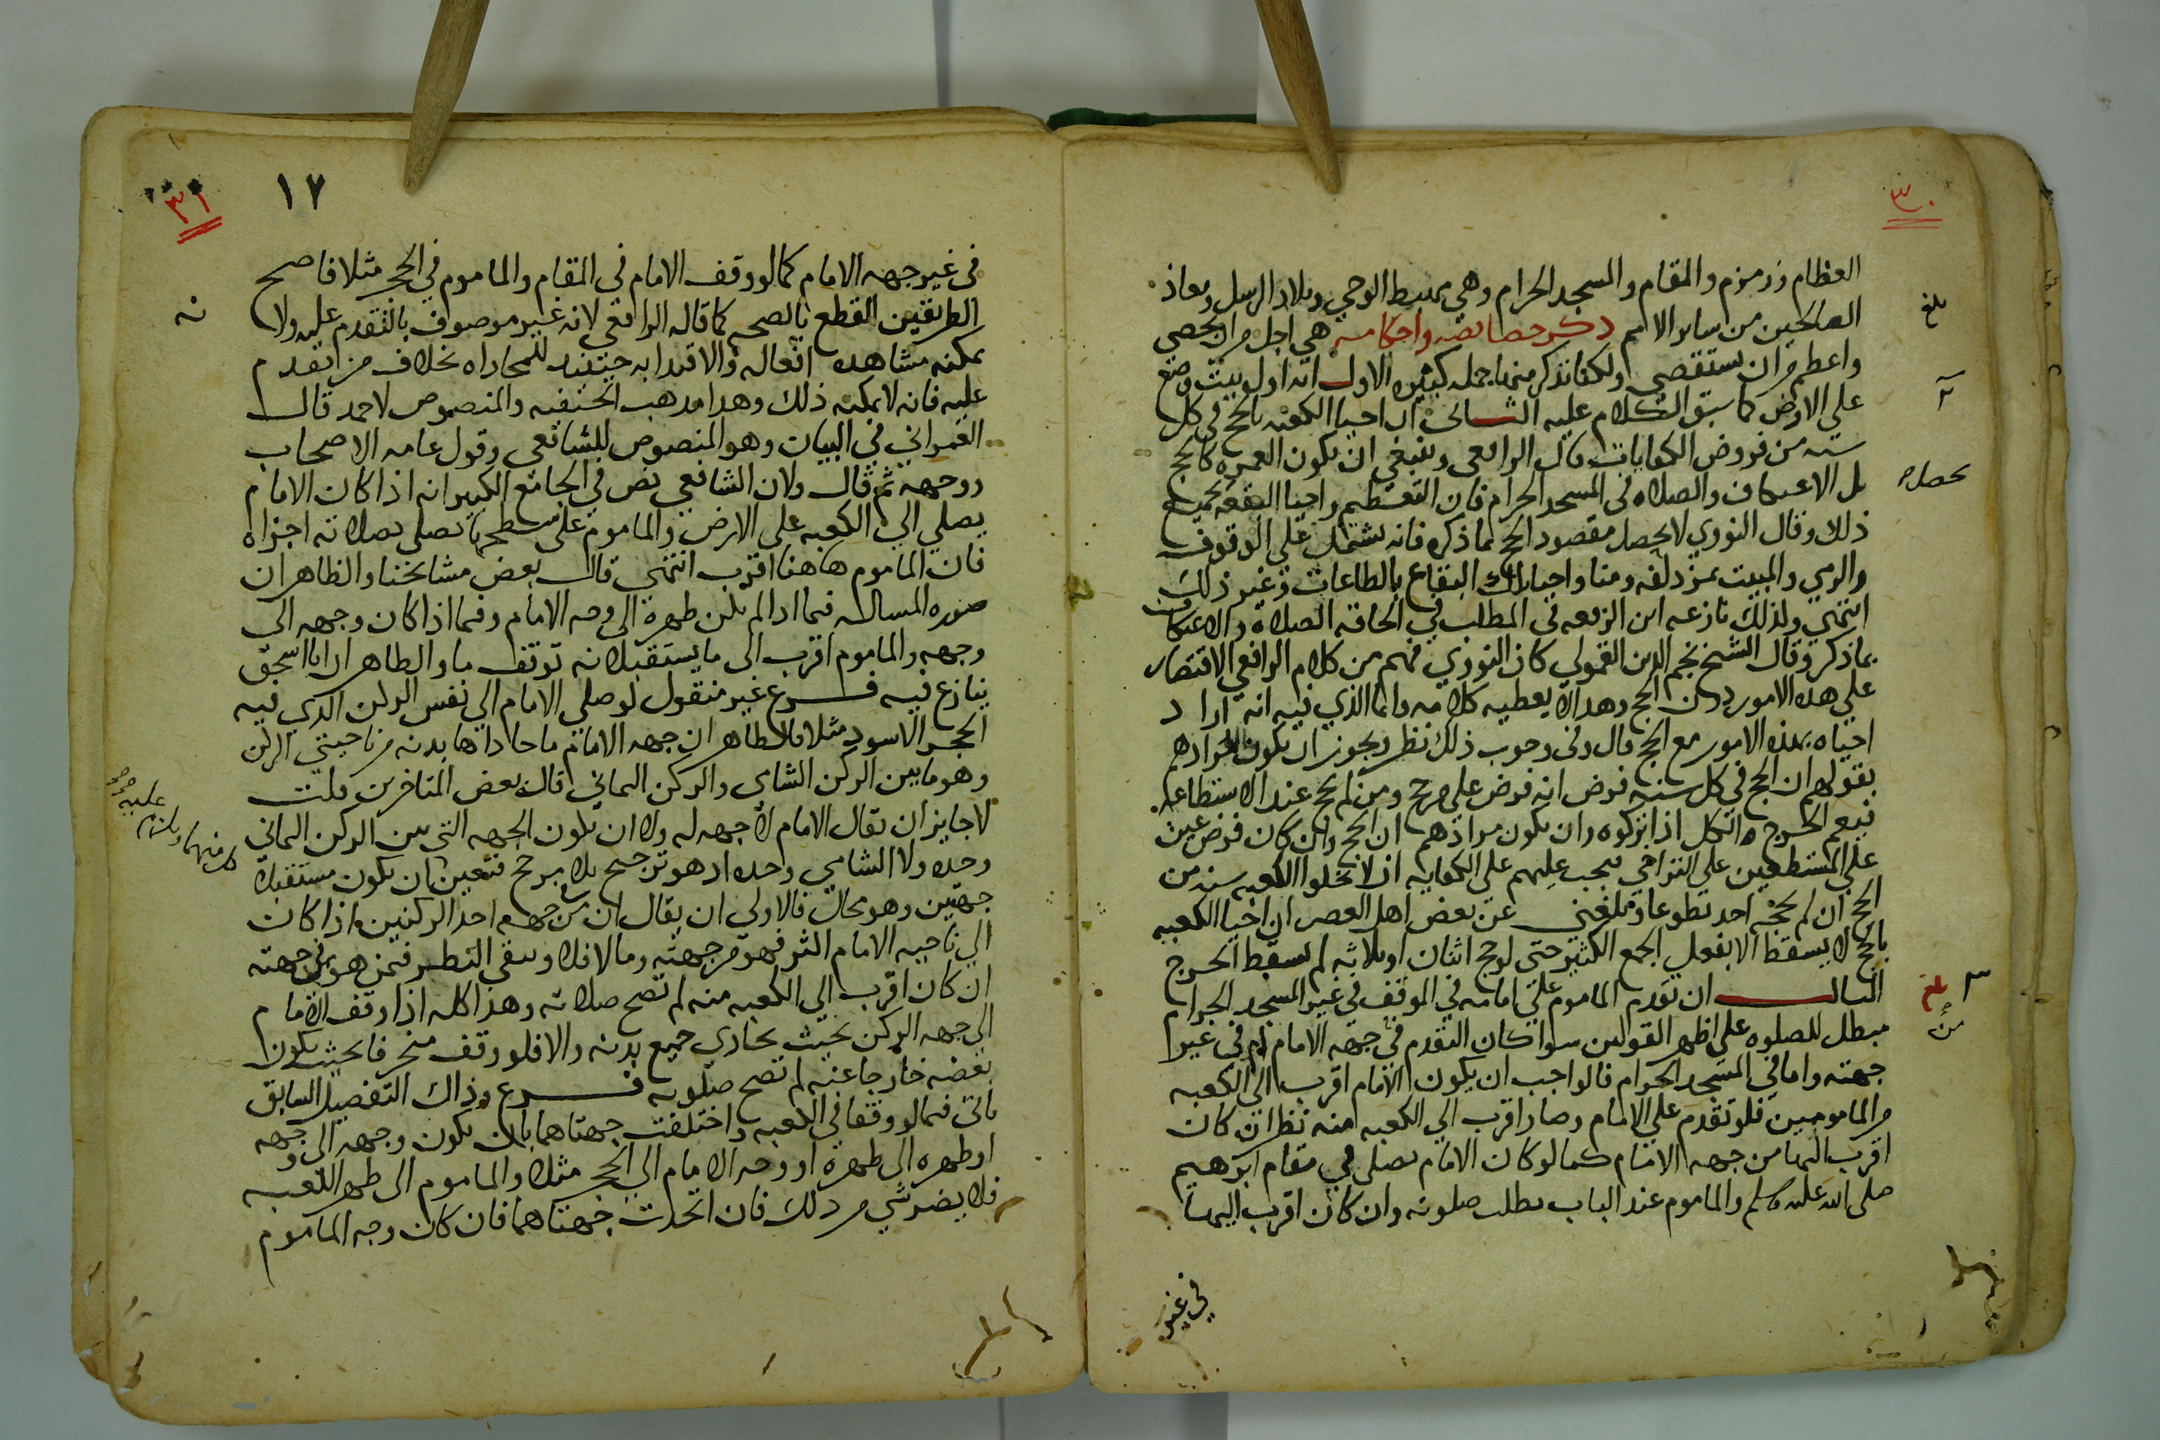 ٣٠
العظام وزمزم والمقام والمسجد الحرام وهي مهبط الوحي وبلاد الرسل ومعاذ
الصالحين من ساير الامم ذكر خصائصه واحكامه هي اجل من ان تحصى
واعظم من ان تستقصى ولكنا نذكر منها جمله كبيره الاول انه اول بيت وضع
على الارض كما سبق الكلام عليه الثاني ان احيا الكعبه بالحج في كل
سنه من فروض الكفايات قال الرافعي وينبغي ان تكون العمره كالحج
بل الاعتكاف والصلاه في المسجد الحرام فان التعظيم واحيا البقعه بجميع
ذلك وقال النووي لا يحصل مقصود الحج بما ذكره فانه يشتمل على الوقوف
والرمي والمبيت بمزدلفه ومنا واحيا تلك البقاع بالطاعات وغير ذلك
انتهي ولذلك نازعه ابن الرفعه في المطلب في الحاقه الصلاه والاعتكاف
بما ذكر وقال الشيخ نجم الدين القمولي كان النووي فهم من كلام الرافعي الاقتصار
على هذه الامور دون الحج وهذا لا يعطيه كلامه وانما الذي فيه انه اراد
احياه بهذه الامور مع الحج قال وفي وجوب ذلك نظر ويجوز ان يكون مرادهم
بقولهم ان الحج في كل سنه فرض انه فرض على من حج ومن لم يحج عند الاستطاعه
فيعم الحرج الكل اذا تركوه وان يكون مرادهم ان الحج وان كان فرض عين
على المستطيعين على التراخي فيجب عليهم على الكفايه ان لا يخلوا الكعبه سنه من
الحج ان لم يحجه احد تطوعا وبلغني عن بعض اهل العصر ان احيا الكعبه
بالحج لا يسقط الا بفعل الجمع الكثير حتى لو حج اثنان او ثلاثه لم يسقط الحرج
الثالث ان تقدم الماموم على امامه في الموقف في غير المسجد الحرام
مبطل للصلوه على اظهر القولين سوا كان التقدم في جهه الامام ام في غير
جهته واما في المسجد الحرام فالواجب ان يكون الامام اقرب الى الكعبه
من المامومين فلو تقدم على الامام وصار اقرب الي الكعبه منه نظر ان كان
اقرب اليها من جهه الامام كما لو كان الامام يصلى في مقام ابرهيم
صلى الله عليه وسلم والماموم عند الباب بطلت صلوته وان كان اقرب اليها
في غير
بلغ
يحصل
بلغ
١٧
٣١
في غير جهه الامام كما لو وقف الامام في المقام والماموم في الحجر مثلا فاصح
الطريقين القطع بالصحه كما قاله الرافعي لانه غير موصوف بالتقدم عليه ولا
يمكنه مشاهده افعاله والاقتدا به حينيذ للمحاذاه بخلاف من تقدم
عليه فانه لا يمكنه ذلك وهذا مذهب الحنفيه والمنصوص لاحمد قال
العمراني في البيان وهو المنصوص للشافعي وقول عامه الاصحاب
ووجهه ثم قال ولان الشافعي نص في الجامع الكبير انه اذا كان الامام
يصلي الي الكعبه على الارض والماموم على سطحها يصلى بصلاته اجزاه
فان الماموم هاهنا اقرب انتهي قال بعض مشايخنا والظاهر ان
صوره المساله فيما اذا لم يكن ظهره الى وجه الامام وفيما اذا كان وجهه الى
وجهه والماموم اقرب الى ما يستقبلانه توقف ما والظاهر ان ابا اسحق
ينازع فيه فرع غير منقول لو صلى الامام الي نفس الركن الذي فيه
الحجر الاسود مثلا فالظاهر ان جهه الامام ما حاذاها بدنه من ناحيتي الركن
وهو ما بين الركن الشامي والركن اليماني قال بعض المتاخرين قلت
لا جايز ان يقال الامام لا جهه له ولا ان تكون الجهه التي بين الركن اليماني
وحده ولا الشامي وحده اذ هو ترجيح بلا مرجح فتعين ان يكون مستقبلا
جهتين وهو محال فالاولى ان يقال ان من جهه احد الركنين اذا كان
الي ناحيه الامام اكثر فهو من جهته وما لا فلا وينبغي النظر فيمن هو في جهته
ان كان اقرب الي الكعبه منه لم تصح صلاته وهذا كله اذا وقف الامام
الى جهه الركن بحيث يحاذي جميع بدنه والا فلو وقف منحرفا بحيث يكون
بعضه خارجا عنه لم تصح صلوته فرع وذاك التفصيل السابق
ياتى فيما لو وقفا في الكعبه واختلفت جهتاهما بان يكون وجهه الى وجهه
او ظهره الى ظهره او وجه الامام الي الحجر مثلا والماموم الى ظهر الكعبه
فلا يضر شي من ذلك فان اتحدت جهتاهما فان كان وجه الماموم